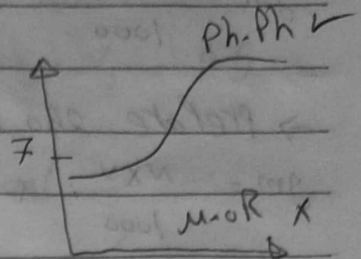 Ph.Ph ✓
7
M.OR X